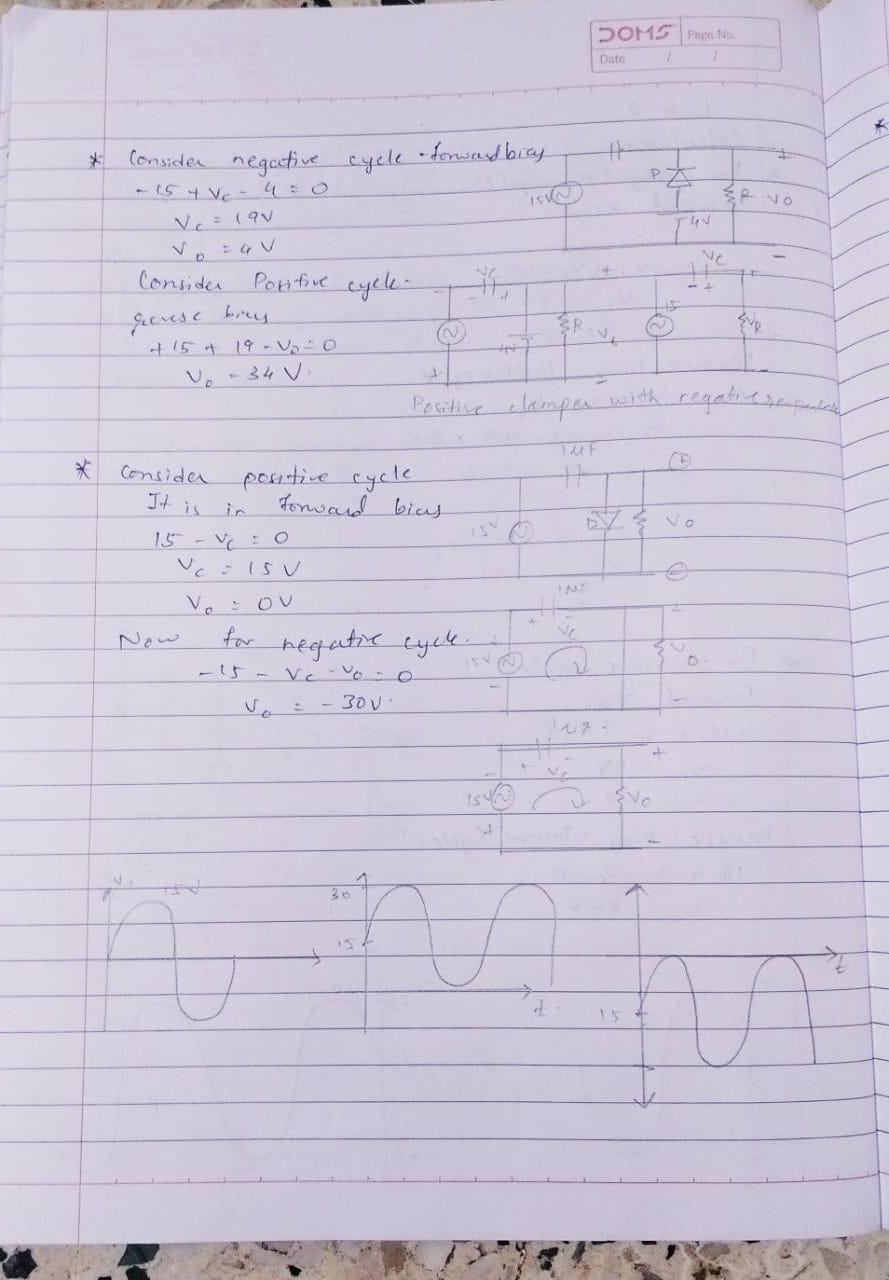 DOMS Page No.
Date / /
* Consider negative cycle - forward bias
- 15 + Vc - 4 = 0
Vc = 19V
Vo = 4V
15V
D
4V
R Vo
+
-
Consider Positive cycle -
reverse bias
+ 15 + 19 - Vo = 0
Vo = 34 V.
Vc
- +
R
+
-
Vc
- +
15
Positive clamper with negative
* Consider positive cycle
It is in forward bias
15 - Vc = 0
Vc = 15V
Vo = 0V
1uF
15V
D
Vo
+
-
Now for negative cycle.
-15 - Vc - Vo = 0
Vo = - 30V.
+ -
Vc
15V
Vo
-
+ Vc
15V
Vo
+
-
Vi
15V
30
15
t
15
t